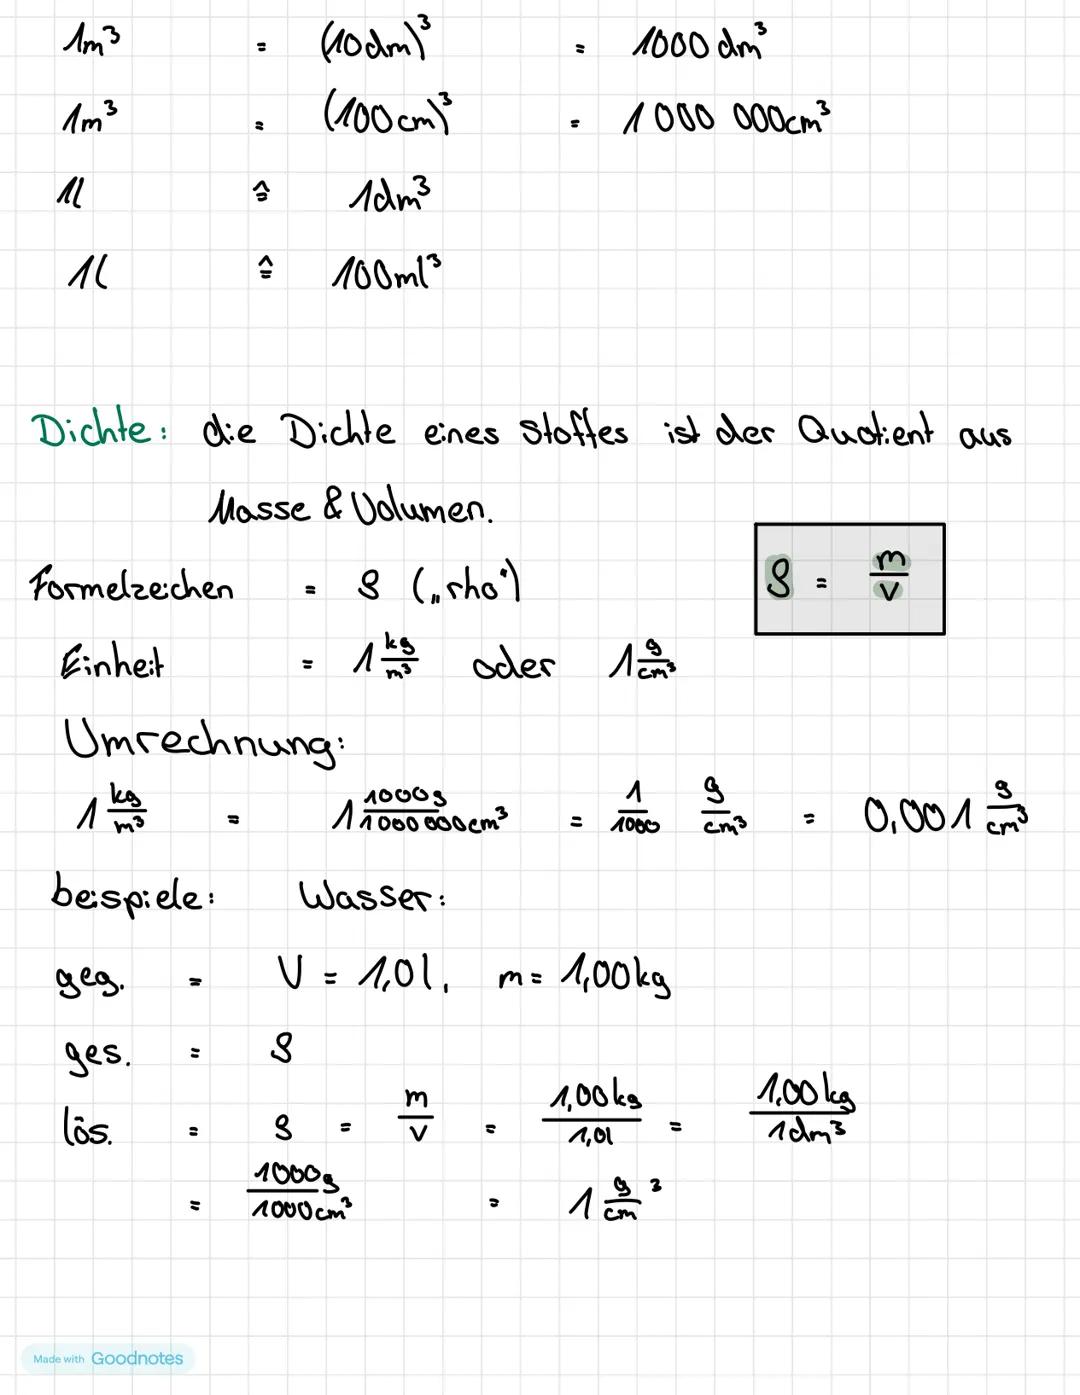 1m³ = (10dm)³ = 1000 dm³
1m³ = (100cm)³ = 1 000 000cm³
1l ≙ 1dm³
1l ≙ 100ml³
Dichte: die Dichte eines Stoffes ist der Quotient aus
Masse & Volumen.
Formelzeichen = ρ („rho")
ρ = m/V
Einheit = 1 kg/m³ oder 1 g/cm³
Umrechnung:
1 kg/m³ = 1 1000g/1000 000cm³ = 1/1000 g/cm³ = 0,001 g/cm³
beispiele: Wasser:
geg. = V = 1,0l, m = 1,00kg
ges. = ρ
lös. = ρ = m/V = 1,00kg/1,0l = 1,00kg/1dm³
= 1000g/1000cm³ = 1 g/cm ³
Made with Goodnotes